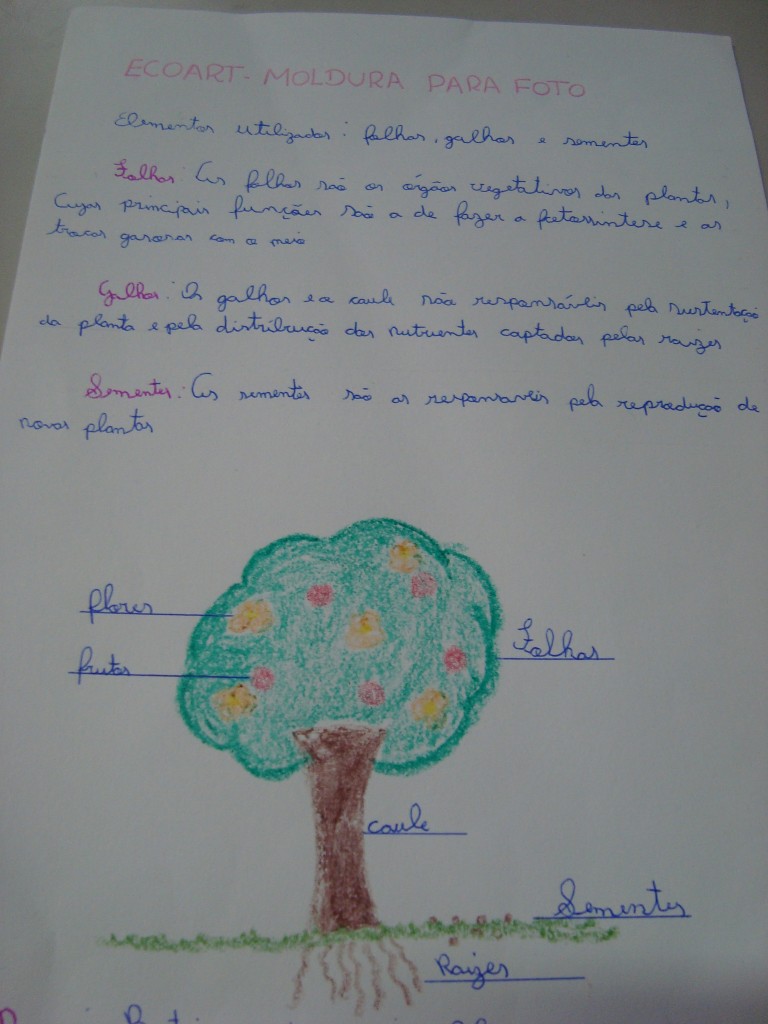 ECOART - MOLDURA PARA FOTO
Elementos utilizados: folhas, galhos e sementes
Folhas: As folhas são os órgãos vegetativos das plantas,
cujas principais funções são a de fazer a fotossintese e as
trocas gasosas com o meio
Galhos: Os galhos e o caule são responsáveis pela sustentação
da planta e pela distribuição dos nutrientes captados pelas raizes
Sementes: As sementes são as responsaveis pela reprodução de
novas plantas
flores
frutos
Folhas
caule
Sementes
Raizes